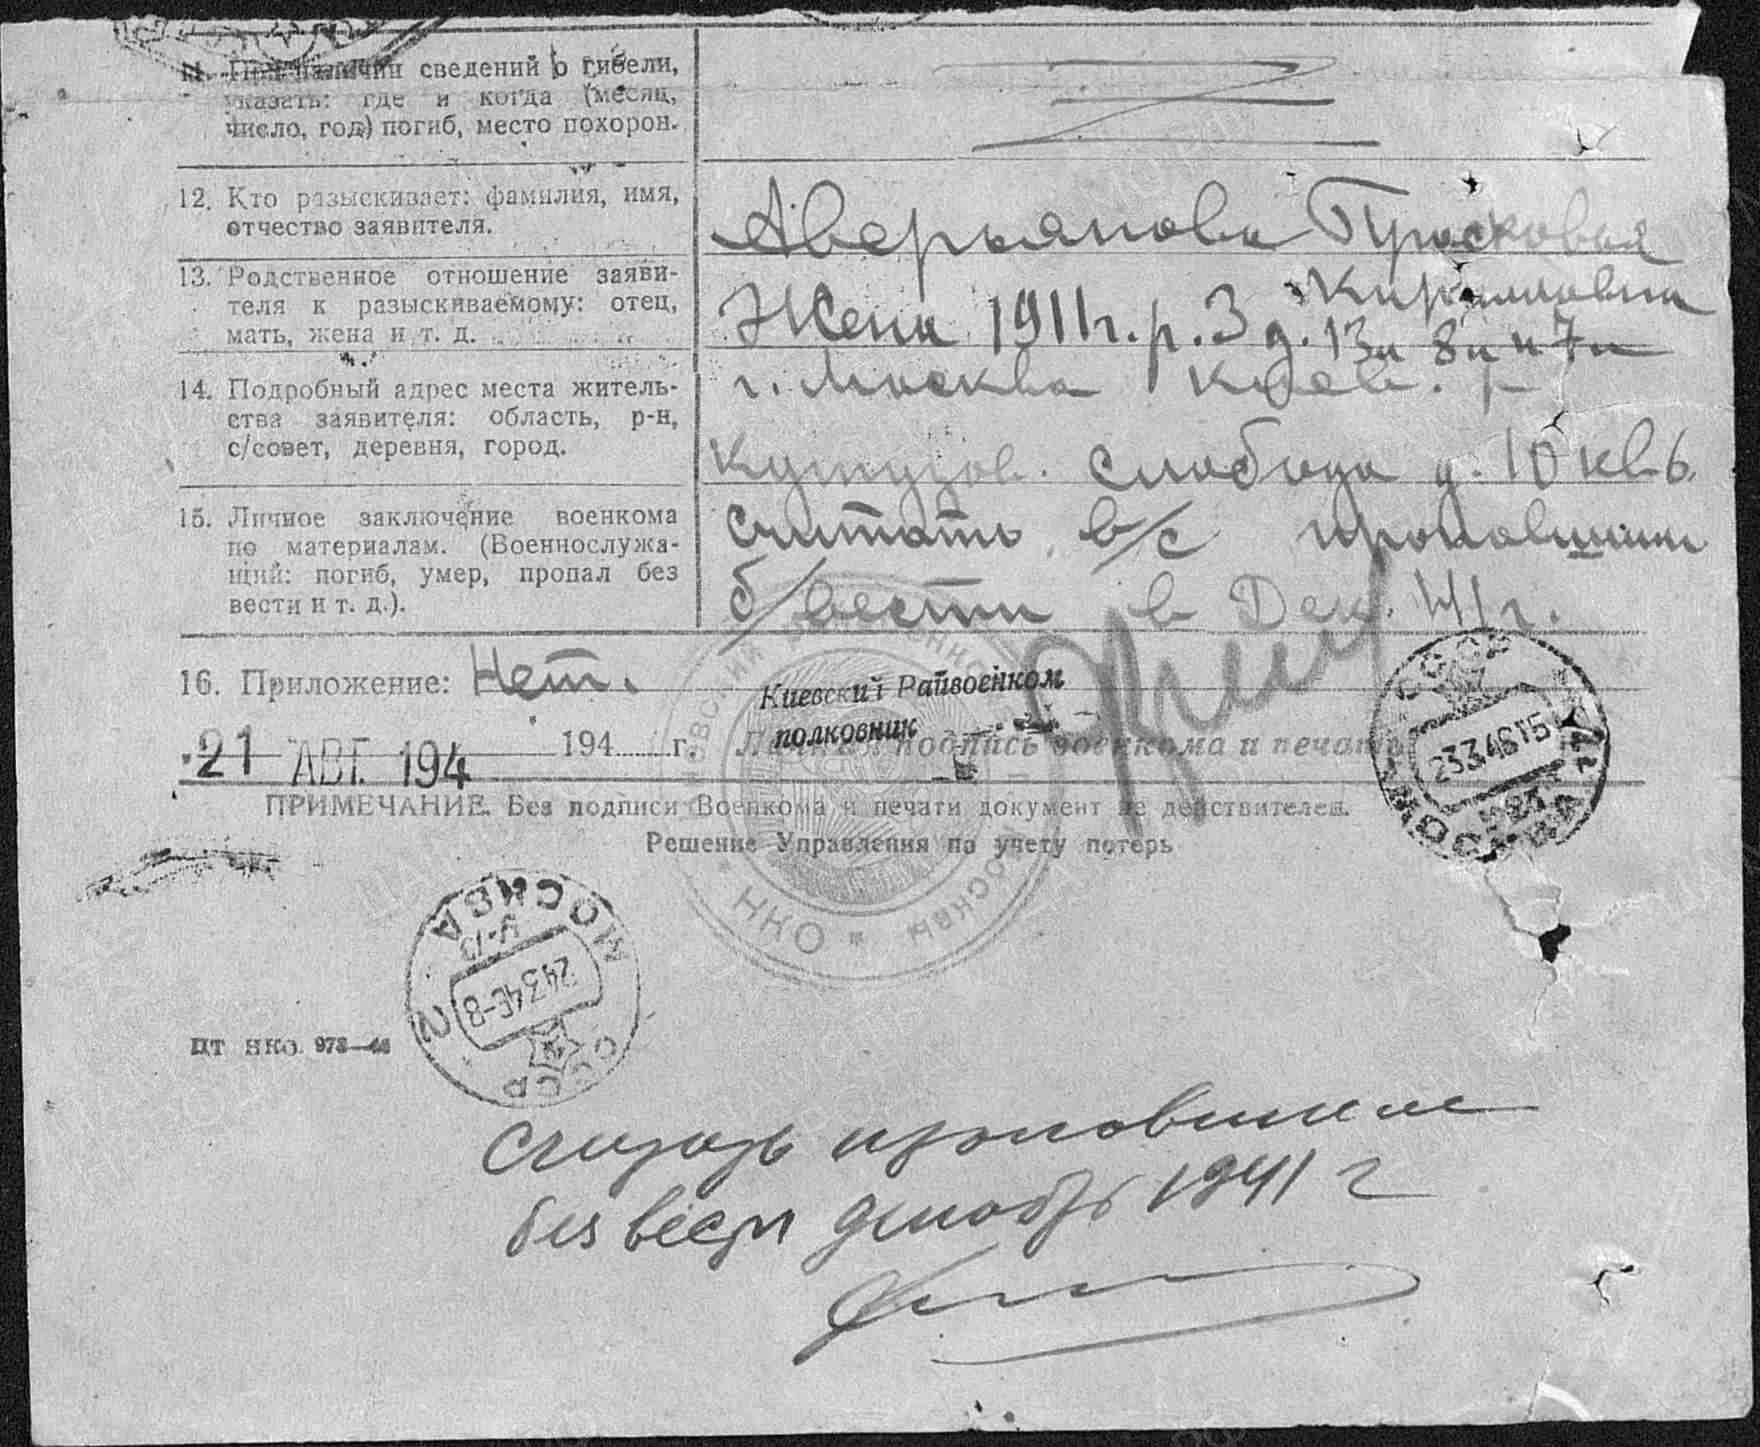 11. При наличии сведений о гибели,
указать: где и когда (месяц,
число, год) погиб, место похорон.
12. Кто разыскивает: фамилия, имя,
отчество заявителя.
Аверьянова Прасковья
Кирилловна
13. Родственное отношение заяви-
теля к разыскиваемому: отец,
мать, жена и т. д.
Жена 1911 г. р. 3 д. 13 и 8 и 7
14. Подробный адрес места житель-
ства заявителя: область, р-н,
с/совет, деревня, город.
г. Москва Киев. р
Кутузов. слобода д. 10 кв 6.
15. Личное заключение военкома
по материалам. (Военнослужа-
щий: погиб, умер, пропал без
вести и т. д.).
Считать в/с пропавшим
б/вести в Дек. 41 г.
16. Приложение: Нет.
Киевский Райвоенком
полковник
21 АВГ. 194 194 г. Личная подпись военкома и печать
ПРИМЕЧАНИЕ. Без подписи Военкома и печати документ не действителен.
Решение Управления по учету потерь
СССР МОСКВА
МОСКВА 2
24346-8
СССР
МОСКВЫ * ОКН
ЦТ НКО. 973—46
Считать пропавшим
без вести декабрь 1941 г